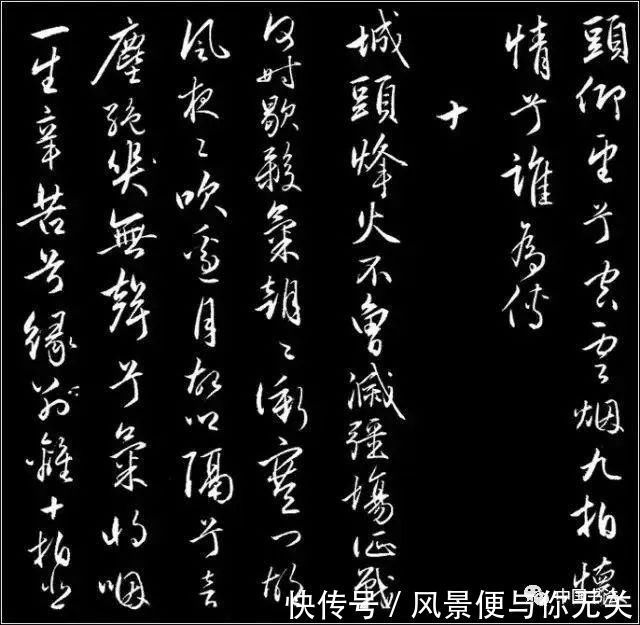 頭仰望兮空雲烟九拍懷
情兮誰為傳
十
城頭烽火不曾滅疆場征戰
何時歇殺氣朝々衝塞門胡
風夜々吹邊月故鄉隔兮音
塵絕哭無聲兮氣將咽
一生辛苦兮緣別離十拍悲
中国书法
快传号/风景便与你无关